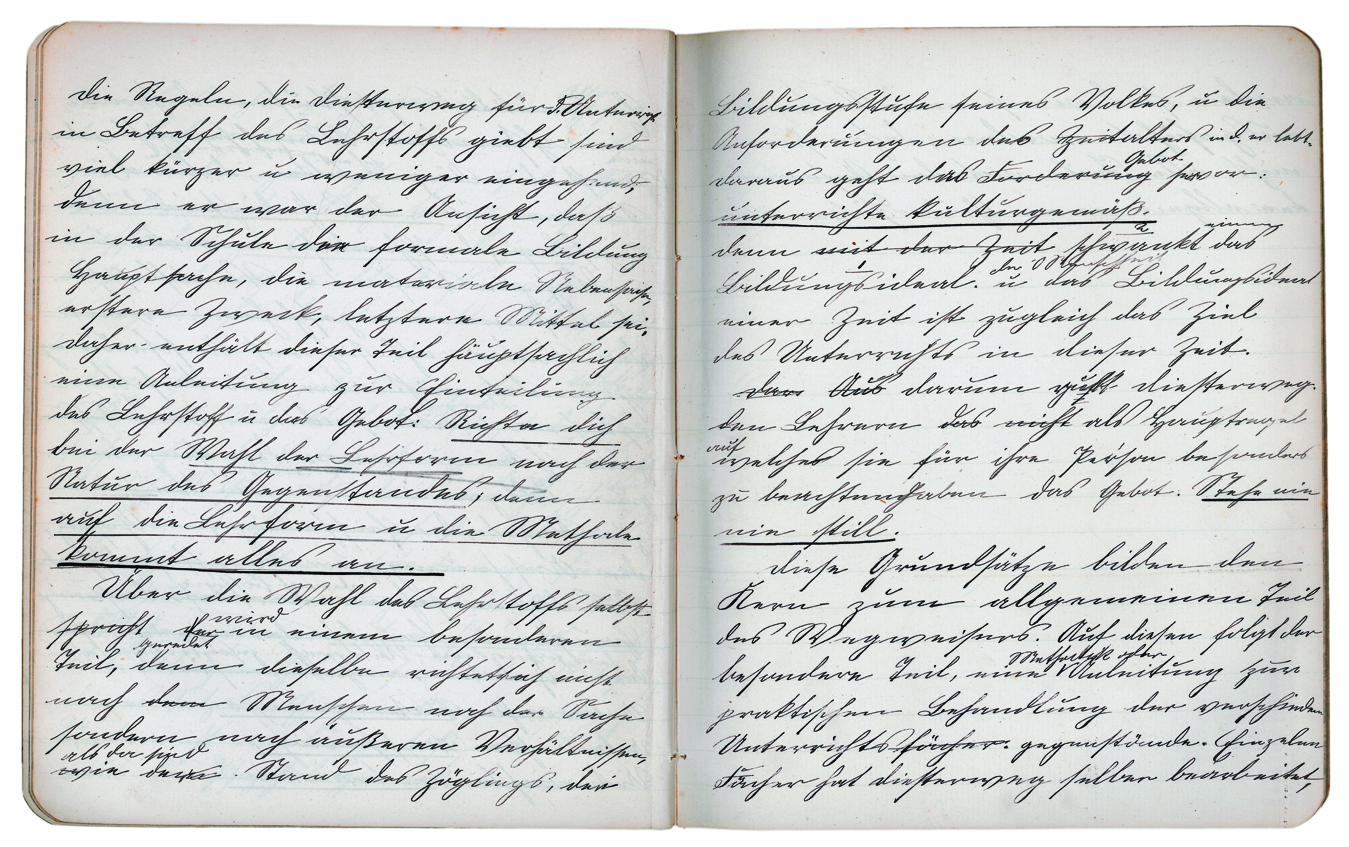 Die Regeln, die Diesterweg für d. Unterricht
in Betreff des Lehrstoffs giebt sind
viel kürzer u weniger eingehend,
denn er war der Ansicht, daß
in der Schule die formale Bildung
Hauptsache, die materiale Nebensache,
erstere Zweck, letztere Mittel sei,
daher enthält dieser Teil hauptsächlich
eine Anleitung zur Einteilung
des Lehrstoff u das Gebot: Richte dich
bei der Wahl der Lehrform nach der
Natur des Gegenstandes; denn
auf die Lehrform u die Methode
kommt alles an.
Über die Wahl des Lehrstoffs selbst
wird
spricht er in einem besonderen
geredet
Teil, denn dieselbe richtet sich nicht
nach dem Menschen noch der Sache
sondern nach äußeren Verhältnissen,
als da sind
wie dem Stand des Zöglings, der
Bildungsstufe seines Volkes, u die
Anforderungen des Zeitalters in d. er lebt.
Gebot
daraus geht das Forderung hervor:
unterrichte kulturgemäß.
denn mit der Zeit schwankt das
Bildungsideal. u das Bildungsideal
einer Zeit ist zugleich das Ziel
des Unterrichts in dieser Zeit.
Aus darum giebt Diesterweg
den Lehrern das nicht als Hauptregel
auf
welches sie für ihre Person besonders
zu beachten haben das Gebot. Stehe nie
nie still.
Diese Grundsätze bilden den
Kern zum allgemeinen Teil
des Wegweisers. Auf diesen folgt der
Methodik oder
besondere Teil, eine Anleitung zur
praktischen Behandlung der verschieden
Unterrichtsfächer. gegenstände. Einzelne
Fächer hat Diesterweg selber bearbeitet,